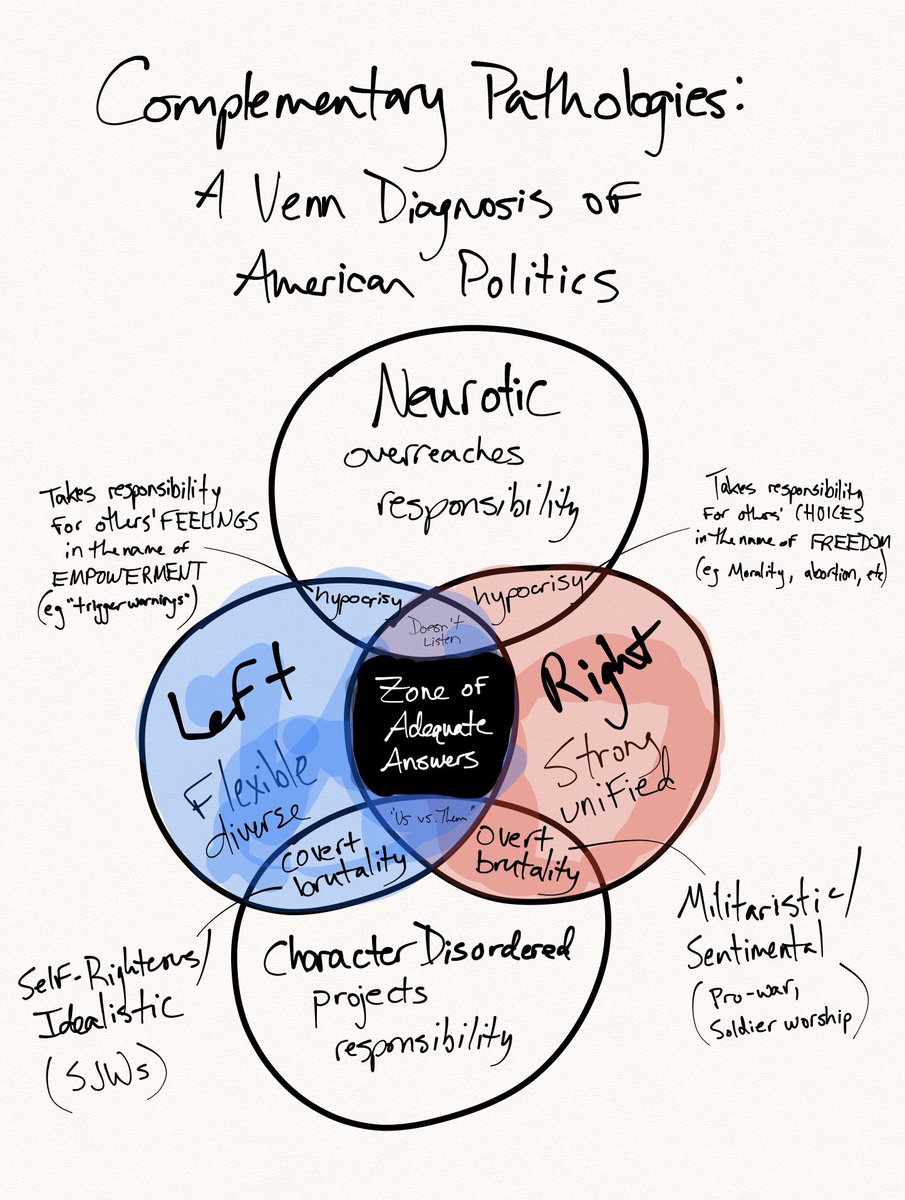 Complementary Pathologies:
A Venn Diagnosis of
American Politics
Neurotic
overreaches
responsibility
Takes responsibility
for others' FEELINGS
in the name of
EMPOWERMENT
(eg "trigger warnings")
Takes responsibility
for others' CHOICES
in the name of FREEDOM
(eg Morality, abortion, etc)
hypocrisy
hypocrisy
Doesn't
Listen
Left
Flexible
diverse
Zone of
Adequate
Answers
Right
Strong
unified
"Us vs. Them"
covert
brutality
overt
brutality
Self-Righteous/
Idealistic
(SJWs)
Militaristic/
Sentimental
(Pro-war,
Soldier worship)
Character Disordered
projects
responsibility